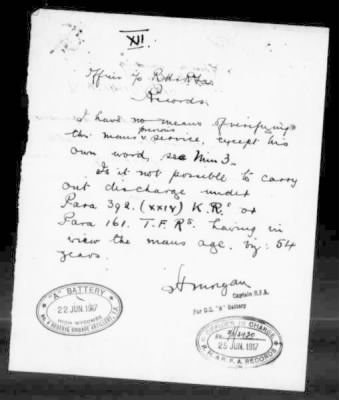 XII
Officer i/c R.H. & R.F.A.
Records.
I have no means of verifying
the mans previous service, except his
own word, see Min 3.
Is it not possible to carry
out discharge under
Para 392. (XXIV) K.R.s or
Para 161. T.F.Rs. having in
view the mans age. viz: 54
years.
Morgan
Captain R.F.A.
For O.C. "A" Battery
"A" BATTERY
22 JUN. 1917
RESERVE BRIGADE
HIGH WYCOMBE
OFFICER IN CHARGE
25 JUN. 1917
R.H. & R.F.A. RECORDS